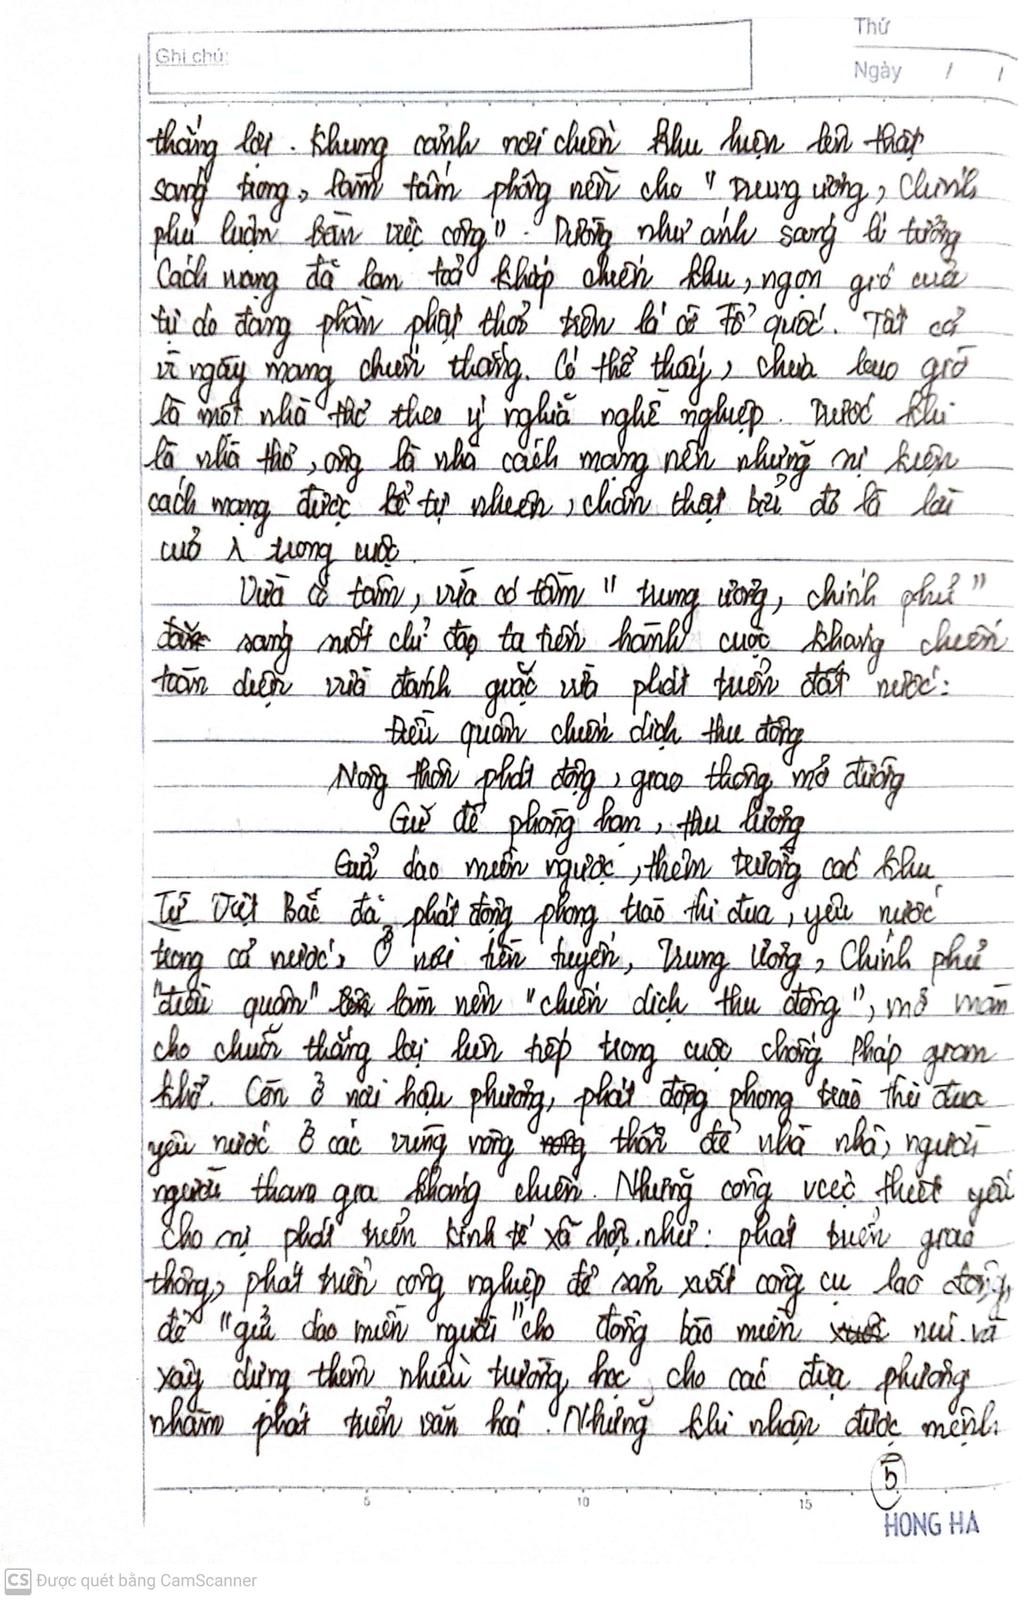 Ghi chú:
Thứ
Ngày / /
thắng lợi. Khung cảnh nơi chiến khu hiện lên thật
sang trọng, làm tấm phông nền cho "Trung ương, Chính
phủ luận bàn việc công". Dường như ánh sáng lí tưởng
Cách mạng đã lan toả khắp chiến khu, ngọn gió của
tự do đang phần phật thổi trên lá cờ Tổ quốc. Tất cả
vì ngày mang chiến thắng. Có thể thấy, chưa bao giờ
là một nhà thơ theo ý nghĩa nghề nghiệp. Trước khi
là nhà thơ, ông là nhà cách mạng nên những sự kiện
cách mạng được kể tự nhiên, chân thật bởi đó là lời
của λ trong cuộc.
Vừa có tâm, vừa có tầm "trung ương, chính phủ"
sáng suốt chỉ đạo ta tiến hành cuộc kháng chiến
toàn diện vừa đánh giặc vừa phát triển đất nước:
Điều quân chiến dịch thu đông
Nông thôn phát động, giao thông mở đường
Giữ đê phòng hạn, thu lương
Gửi dao miền ngược, thêm trường các khu
Từ Việt Bắc đã phát động phong trào thi đua, yêu nước
trong cả nước, Ở nơi tiền tuyến, Trung Ương, Chính phủ
"điều quân" làm nên "chiến dịch thu đông", mở màn
cho chuỗi thắng lợi liên tiếp trong cuộc chống Pháp gian
khổ. Còn ở nơi hậu phương, phát động phong trào thi đua
yêu nước ở các vùng nông thôn để nhà nhà, người
người tham gia kháng chiến. Những công việc thiết yếu
cho sự phát triển kinh tế xã hội như: phát triển giao
thông, phát triển công nghiệp để sản xuất công cụ lao động,
để "gửi dao miền người" cho đồng bào miền núi và
xây dựng thêm nhiều trường học cho các địa phương
nhằm phát triển văn hoá. Những khi nhận được mệnh
5
5 10 15
HONG HA
CS Được quét bằng CamScanner